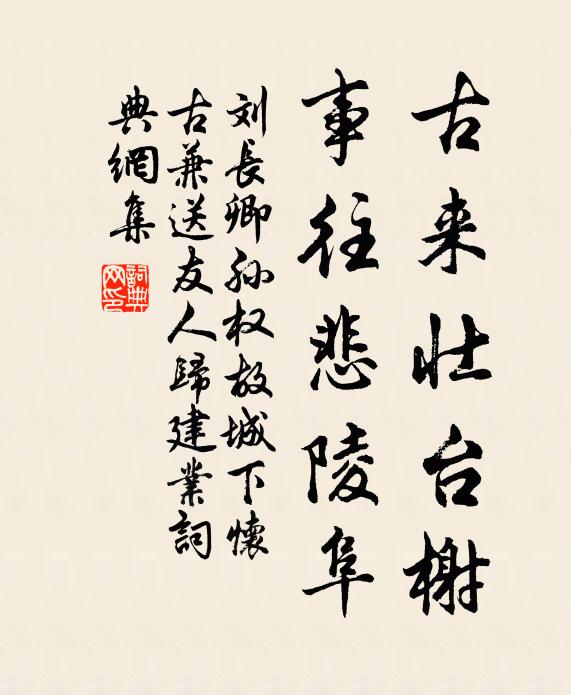 古来壮台榭
事往悲陵阜
刘長卿孙权故城下懷
古兼送友人歸建業詞
典網集
詞典网印